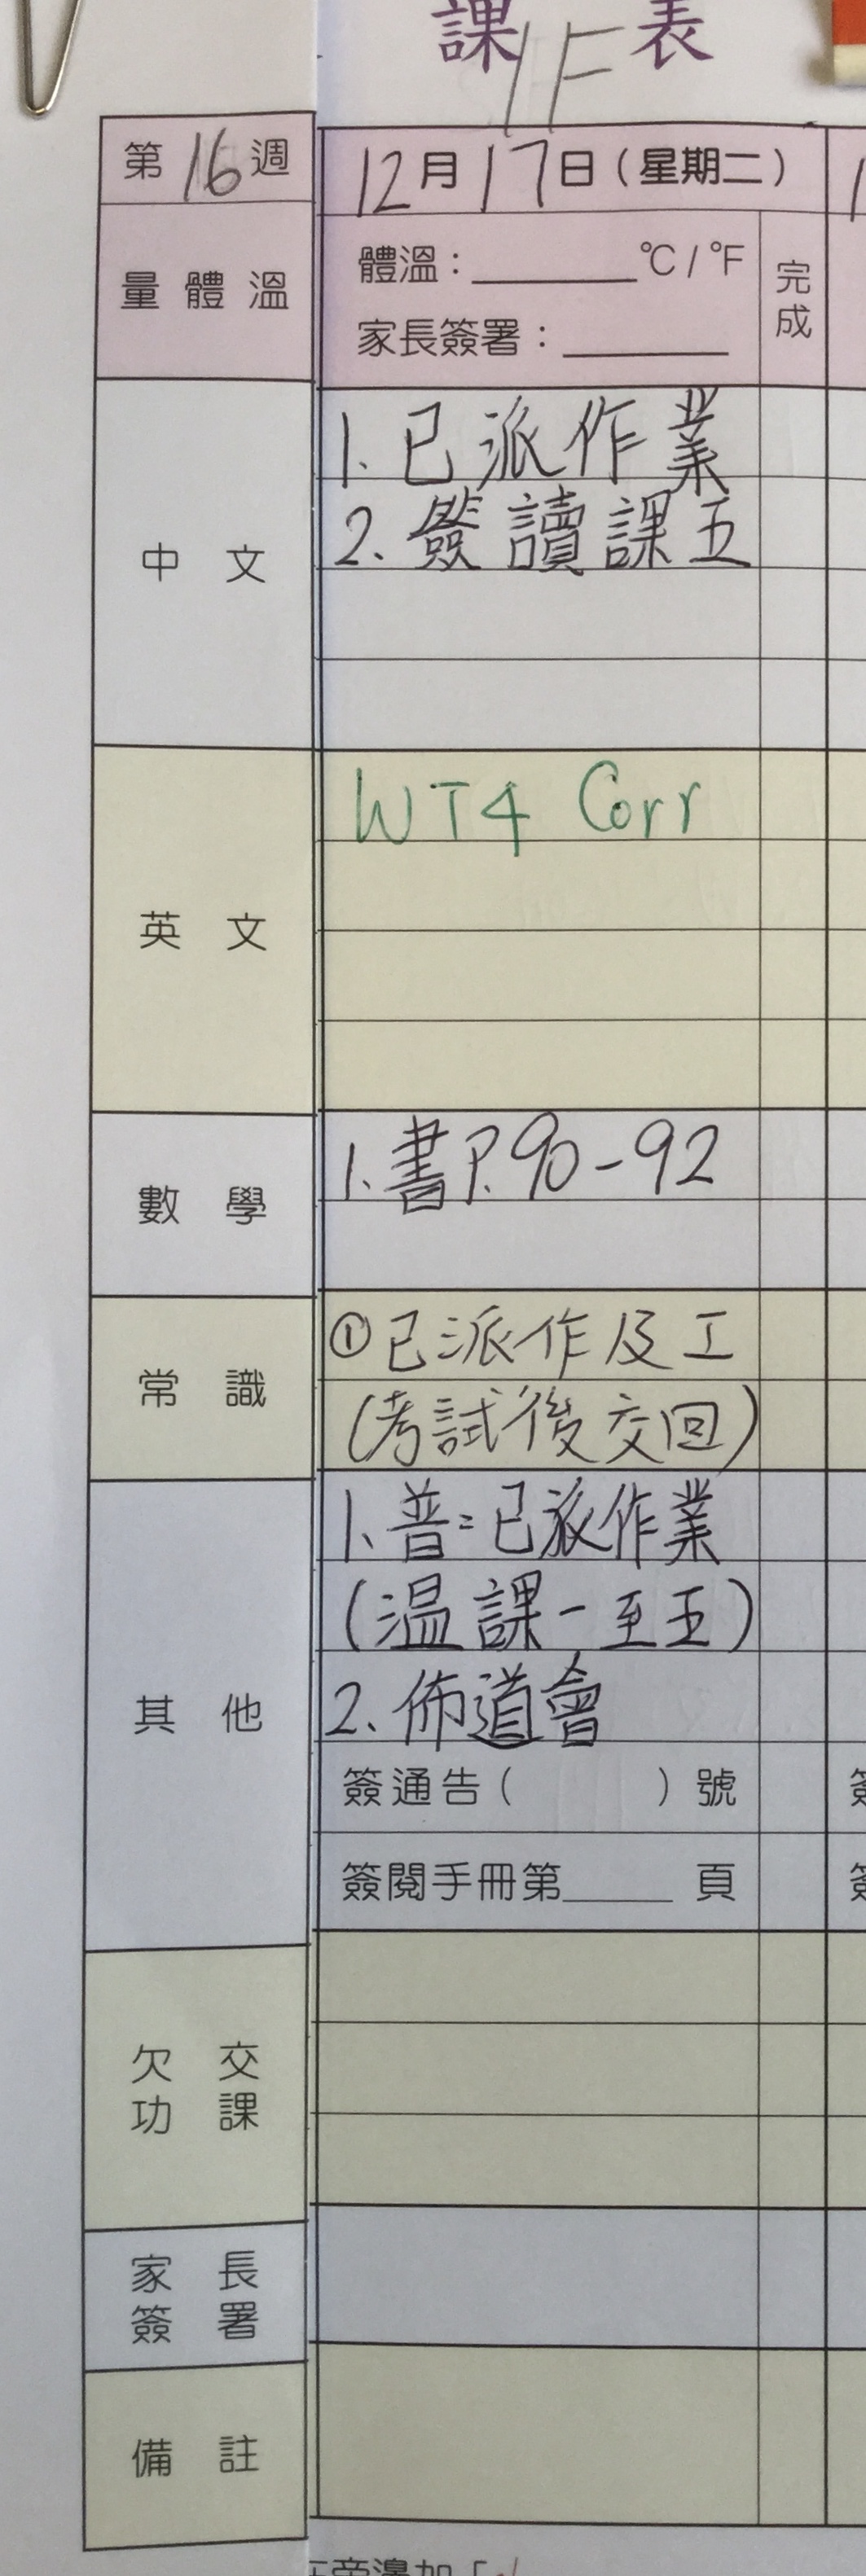 課 表
1F
第16週
12月17日(星期二)
量體溫
體溫:______°C/°F
家長簽署:______
完成
中文
1. 已派作業
2. 簽讀課五
英文
WT4 Corr
數學
1. 書P.90-92
常識
①已派作及工
(考試後交回)
其他
1. 普:已派作業
(温課一至五)
2. 佈道會
簽通告( )號
簽閱手冊第____頁
欠交
功課
家長
簽署
備註